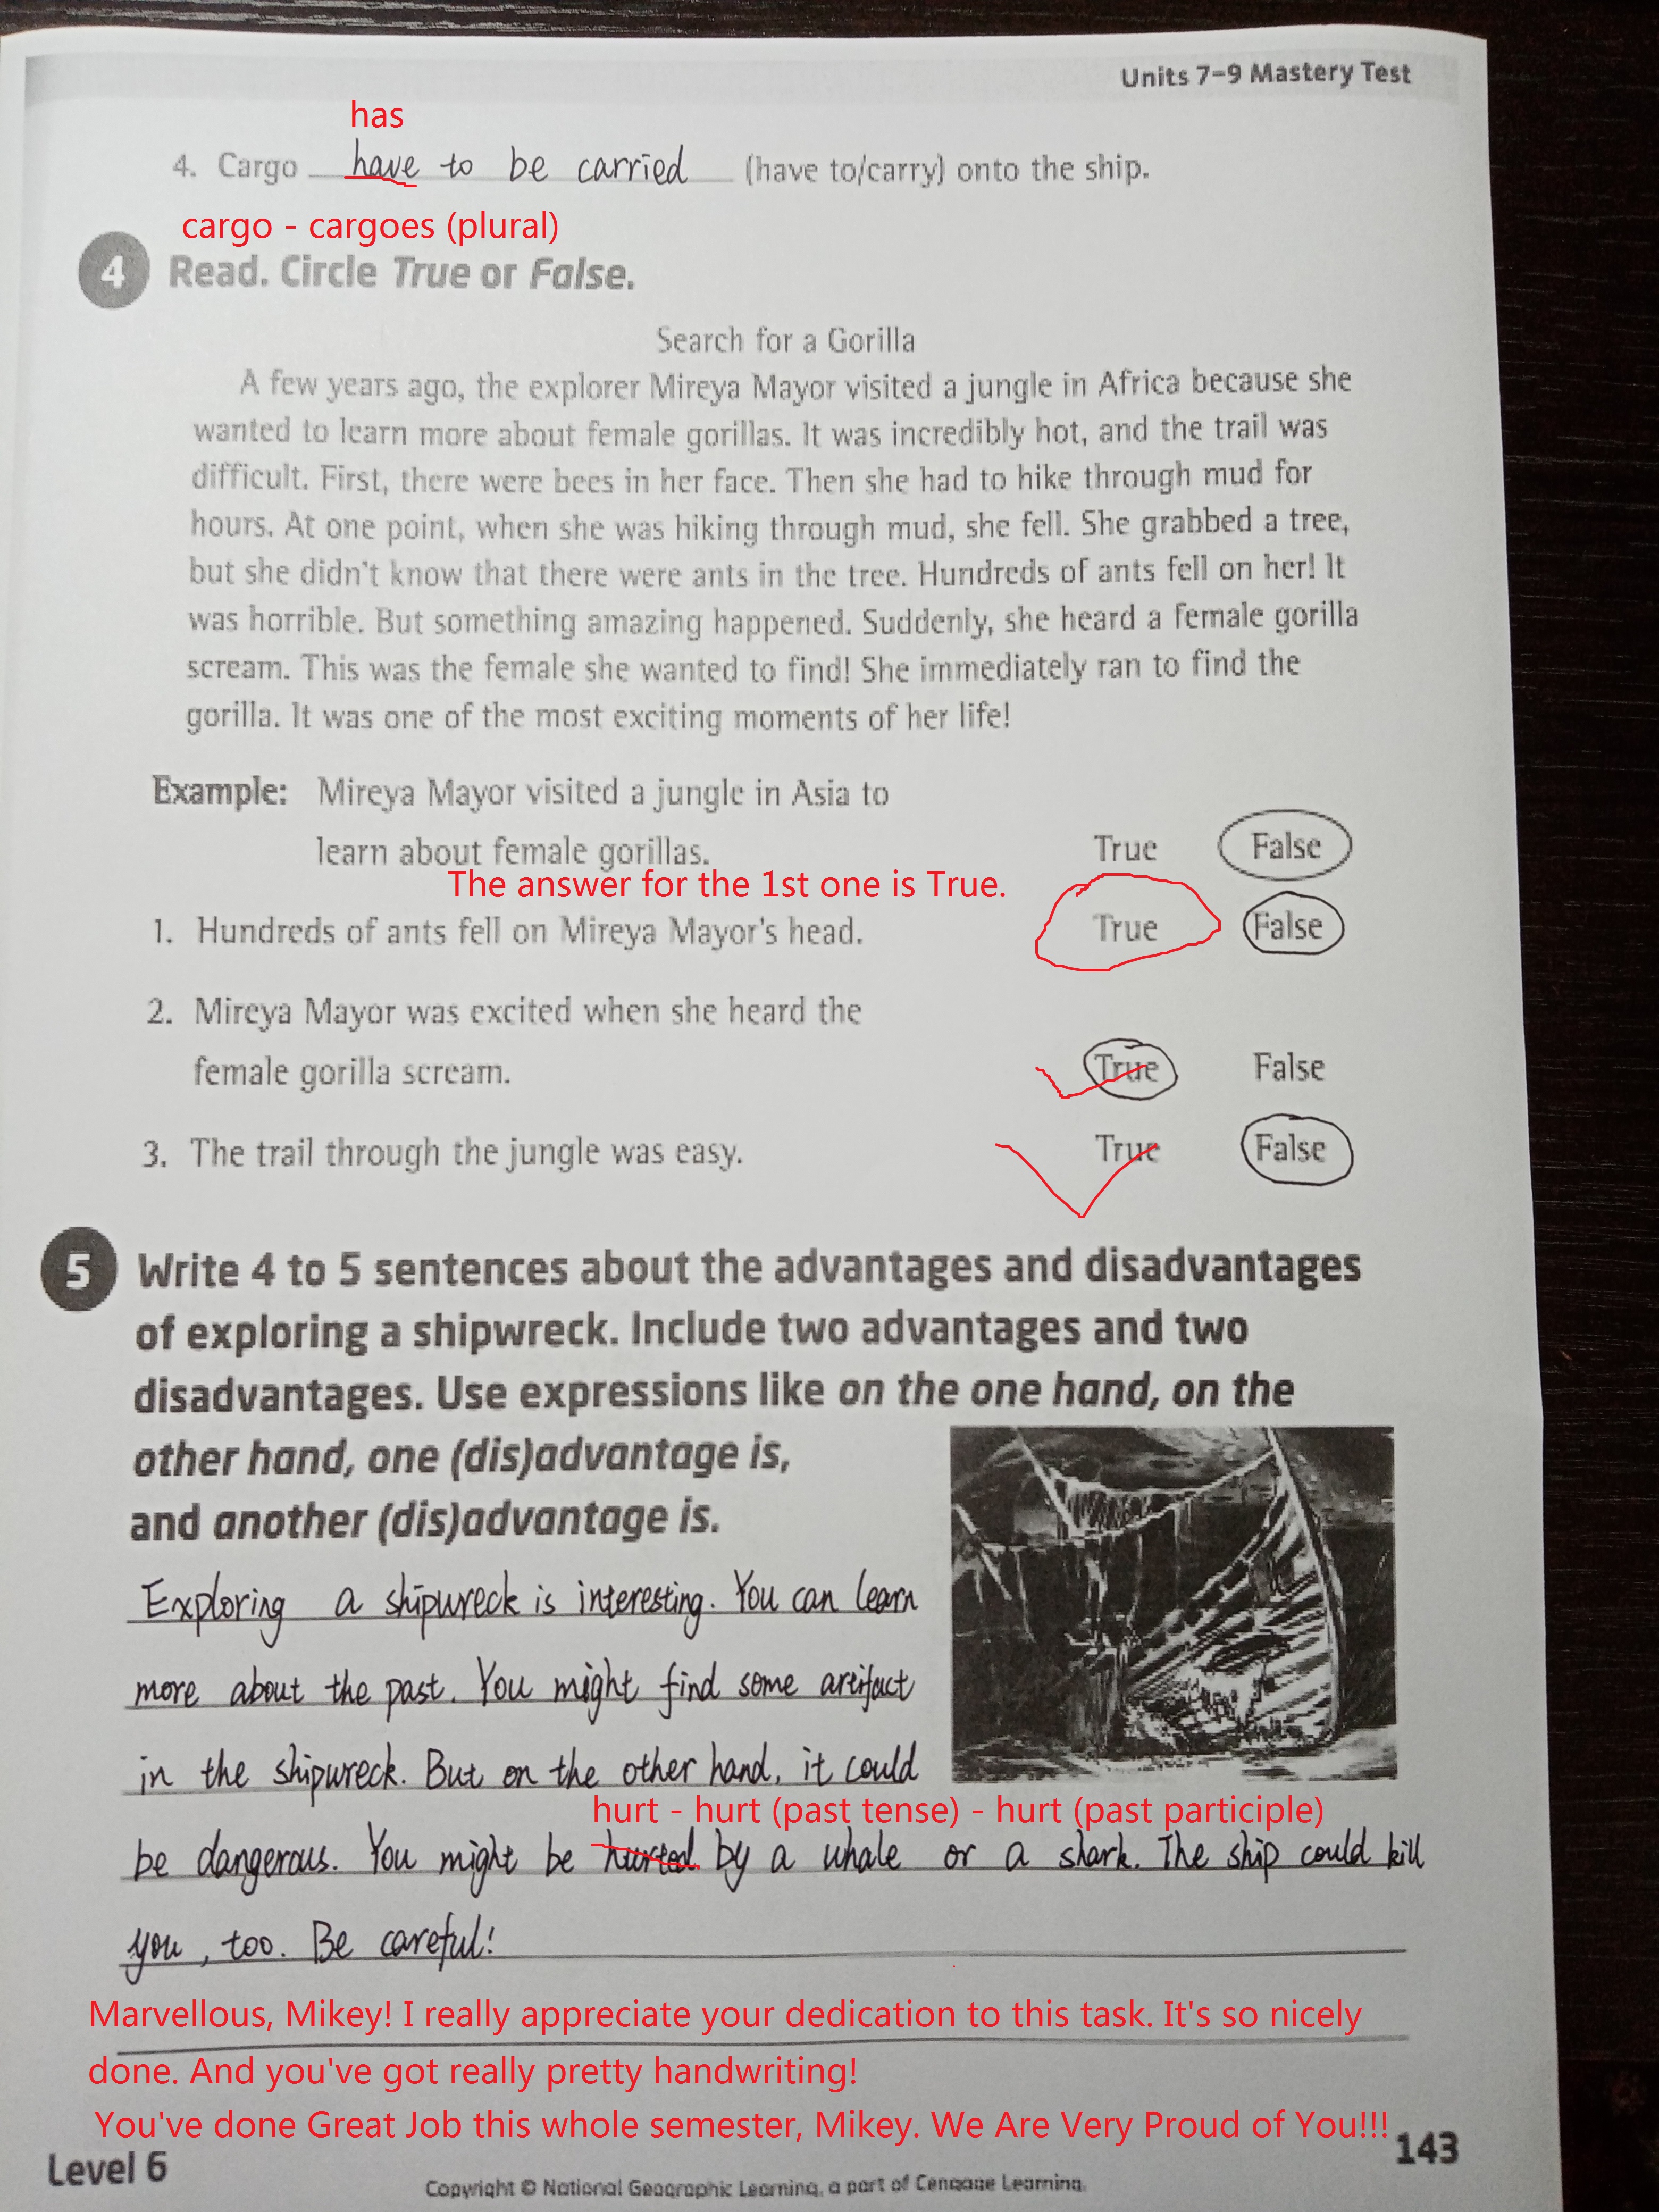 Units 7-9 Mastery Test
has
4. Cargo have to be carried (have to/carry) onto the ship.
cargo - cargoes (plural)
4 Read. Circle True or False.
Search for a Gorilla
A few years ago, the explorer Mireya Mayor visited a jungle in Africa because she
wanted to learn more about female gorillas. It was incredibly hot, and the trail was
difficult. First, there were bees in her face. Then she had to hike through mud for
hours. At one point, when she was hiking through mud, she fell. She grabbed a tree,
but she didn't know that there were ants in the tree. Hundreds of ants fell on her! It
was horrible. But something amazing happened. Suddenly, she heard a female gorilla
scream. This was the female she wanted to find! She immediately ran to find the
gorilla. It was one of the most exciting moments of her life!
Example: Mireya Mayor visited a jungle in Asia to
learn about female gorillas. True False
The answer for the 1st one is True.
1. Hundreds of ants fell on Mireya Mayor's head. True False
2. Mireya Mayor was excited when she heard the
female gorilla scream. True False
3. The trail through the jungle was easy. True False
5 Write 4 to 5 sentences about the advantages and disadvantages
of exploring a shipwreck. Include two advantages and two
disadvantages. Use expressions like on the one hand, on the
other hand, one (dis)advantage is,
and another (dis)advantage is.
Exploring a shipwreck is interesting. You can learn
more about the past. You might find some artifact
in the shipwreck. But on the other hand, it could
hurt - hurt (past tense) - hurt (past participle)
be dangerous. You might be hurted by a whale or a shark. The ship could kill
you, too. Be careful!
Marvellous, Mikey! I really appreciate your dedication to this task. It's so nicely
done. And you've got really pretty handwriting!
You've done Great Job this whole semester, Mikey. We Are Very Proud of You!!!
143
Level 6
Copyright © National Geographic Learning, a part of Cengage Learning.